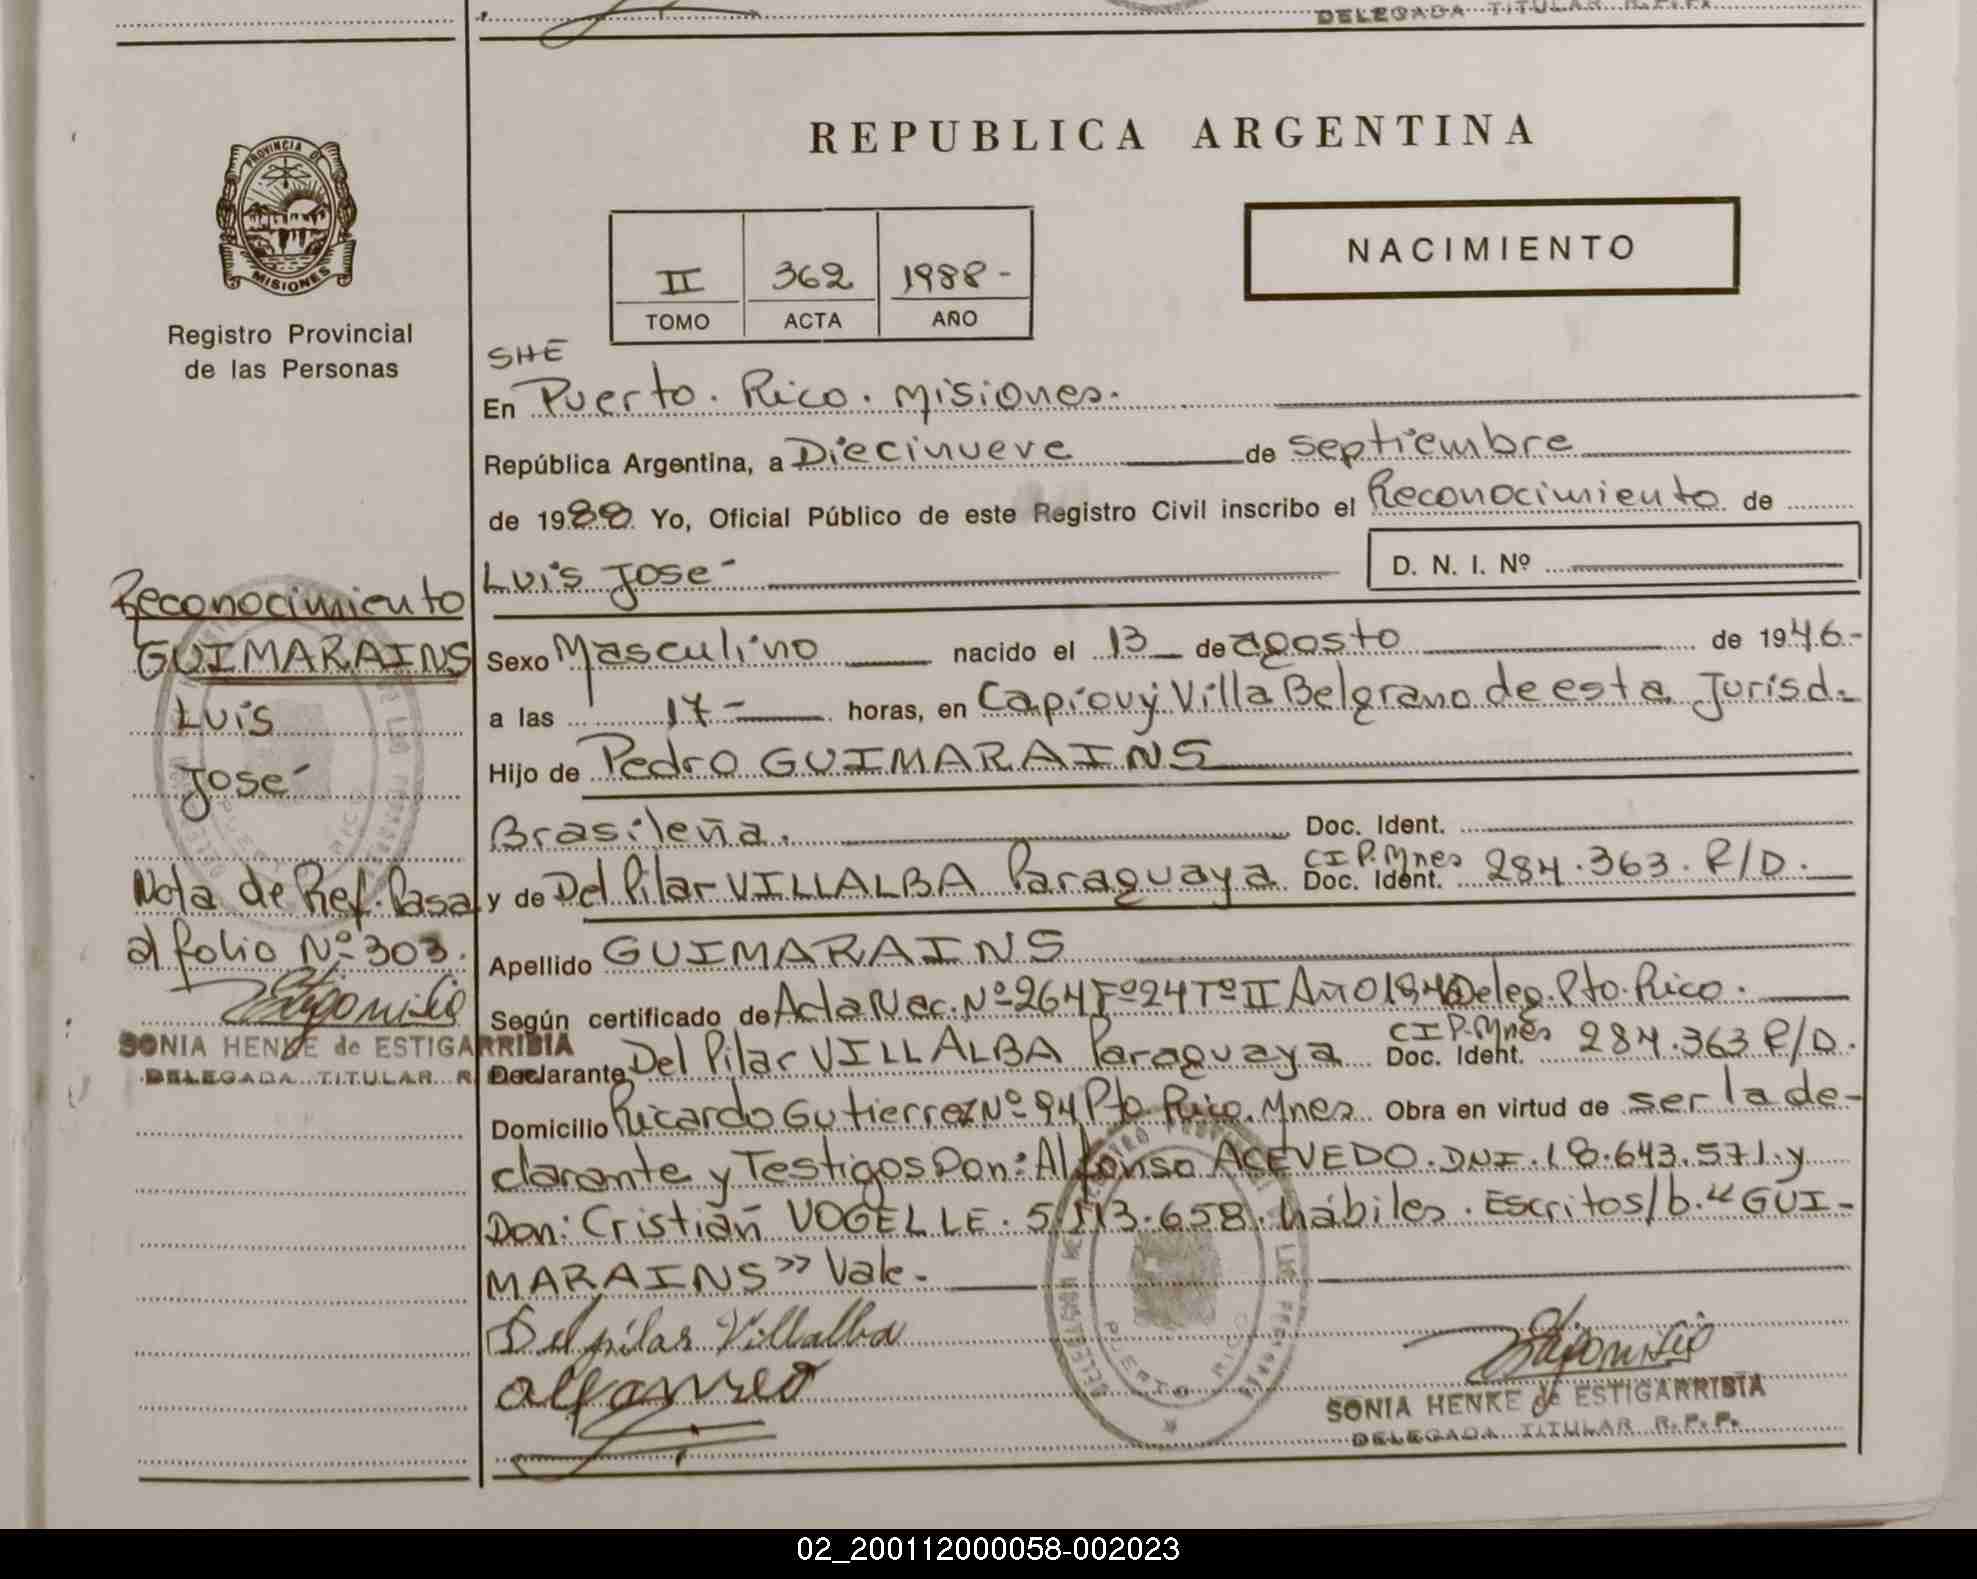 DELEGADA TITULAR R.P.P.
REPUBLICA ARGENTINA
PROVINCIA DE
MISIONES
Registro Provincial
de las Personas
II 362 1988-
TOMO ACTA AÑO
NACIMIENTO
SHE
En Puerto. Rico. Misiones.
República Argentina, a Diecinueve de septiembre
de 1988 Yo, Oficial Público de este Registro Civil inscribo el Reconocimiento de
Luis José
D. N. I. Nº
Sexo Masculino nacido el 13 de agosto de 1946.-
a las 17- horas, en Capiovy Villa Belgrano de esta Jurisd.
Hijo de Pedro GUIMARAINS
Brasileña. Doc. Ident.
y de Del Pilar VILLALBA Paraguaya C.I.P.Mnes Doc. Ident. 284.363. R/D.
Apellido GUIMARAINS
Según certificado de Acta Nac. Nº 264 Fº 24 Tº II Año 1946 Deleg. Pto. Rico.
Declarante Del Pilar VILLALBA Paraguaya C.I.P.Mnes Doc. Ident. 284.363 R/D.
Domicilio Ricardo Gutierrez Nº 94 Pto Rico. Mnes. Obra en virtud de ser la de-
clarante y Testigos Don: Alfonso ACEVEDO. DNI. 18.643.571. y
Don: Cristián VOGEL LE. 5.113.658. hábiles. Escritos/b. "GUI-
MARAINS" Vale.
Delpilar Villalba
SONIA HENKE de ESTIGARRIBIA
DELEGADA TITULAR R.P.P.
Reconocimiento
GUIMARAINS
Luis
José
Nota de Ref. Pasa
al folio Nº 303.
SONIA HENKE de ESTIGARRIBIA
DELEGADA TITULAR R.
PUERTO RICO
PUERTO RICO
02_200112000058-002023